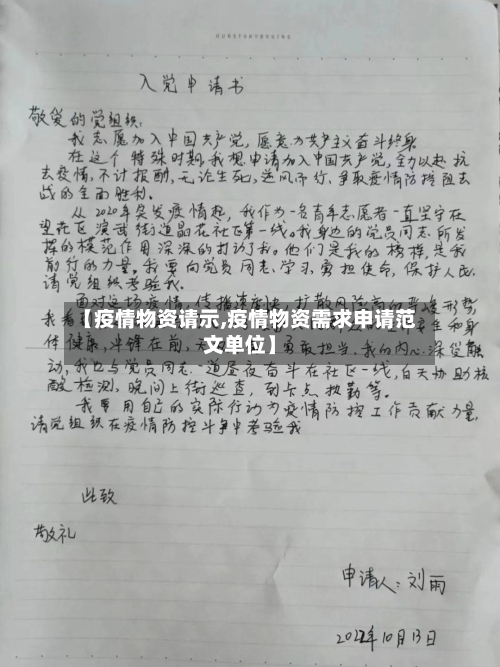 入党申请书
敬爱的党组织:
我志愿加入中国共产党,愿意为共产主义奋斗终身
在这个特殊时期,我想申请加入中国共产党,全力以赴抗
去疫情,不计报酬,无论生死,逆风而行,争取疫情防控阻击
战的全面胜利。
从2020年突发疫情起,我作为一名青年志愿者一直坚守在
望花区演武街道晶花社区第一线。我身边的党员同志所发
挥的模范作用深深的打动了我。他们是我的榜样,是我
前行的力量。我要向党员同志学习,勇担使命,保护人民
请党组织考验我。
面对这场疫情,传播速度快,扩散风险高的严峻形势
【疫情物资请示,疫情物资需求申请范
文单位】
体健康,冲锋在前,勇敢担当.我的内心深受触
动,我也与党员同志一道昼夜奋斗在社区一线,白天协助核
酸检测,晚间上街巡查,到卡点执勤等。
我要用自己的实际行动为疫情防控工作贡献力量,
请党组织在疫情防控斗争中考验我
此致
敬礼
申请人:刘雨
2022年10月13日